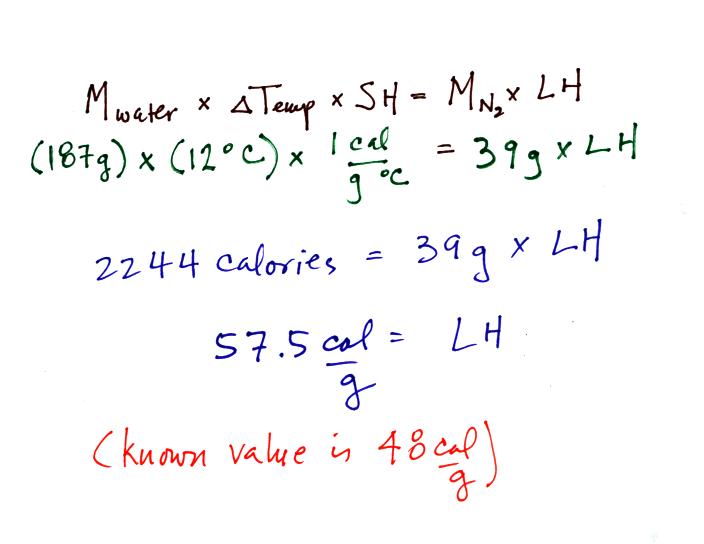 M water × ΔTemp × SH = M N₂ × LH
(187g) × (12°C) × 1 cal/g °C = 39g × LH
2244 calories = 39g × LH
57.5 cal/g = LH
(known value is 48 cal/g)